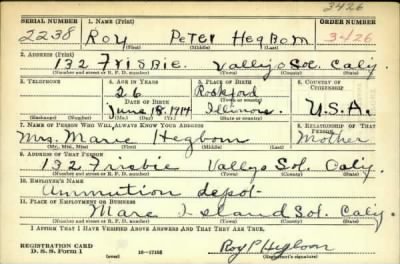 3426
SERIAL NUMBER 1. NAME (Print) ORDER NUMBER
2238 Roy Peter Hegbom 3426
(First) (Middle) (Last)
2. ADDRESS (Print)
132 Frisbie. Vallejo Sol. Calif.
(Number and street or R. F. D. number) (Town) (County) (State)
3. TELEPHONE 4. AGE IN YEARS 5. PLACE OF BIRTH 6. COUNTRY OF CITIZENSHIP
26 Rockford
DATE OF BIRTH
June 18, 1914 Illinois. U.S.A.
(Exchange) (Number) (Mo.) (Day) (Yr.) (State or country)
7. NAME OF PERSON WHO WILL ALWAYS KNOW YOUR ADDRESS 8. RELATIONSHIP OF THAT PERSON
Mrs. Marie Hegbom Mother
(Mr., Mrs., Miss) (First) (Middle) (Last)
9. ADDRESS OF THAT PERSON
132 Frisbie Vallejo Sol. Calif.
(Number and street or R. F. D. number) (Town) (County) (State)
10. EMPLOYER'S NAME
Ammution depot-
11. PLACE OF EMPLOYMENT OR BUSINESS
Mare Island Sol. Calif.
(Number and street or R. F. D. number) (Town) (County) (State)
I AFFIRM THAT I HAVE VERIFIED ABOVE ANSWERS AND THAT THEY ARE TRUE.
REGISTRATION CARD
D. S. S. Form 1 (over) 16-17105 Roy P Hegbom
(Registrant's signature)